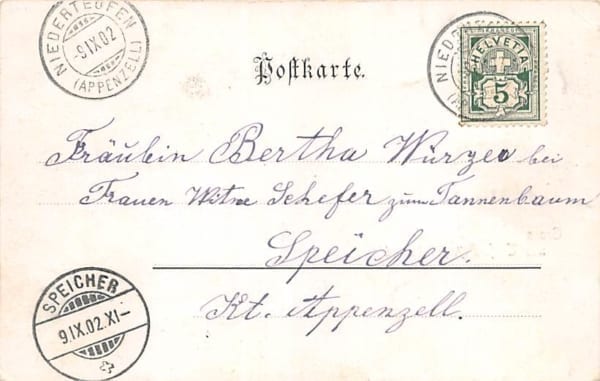 NIEDERTEUFEN
-9.IX.02
(APPENZELL)
Postkarte.
HELVETIA
5
Fräulein Bertha bei
Frauen Witwe Schefer zum Tannenbaum
Speicher.
Kt. Appenzell.
SPEICHER
9.IX.02.XI-